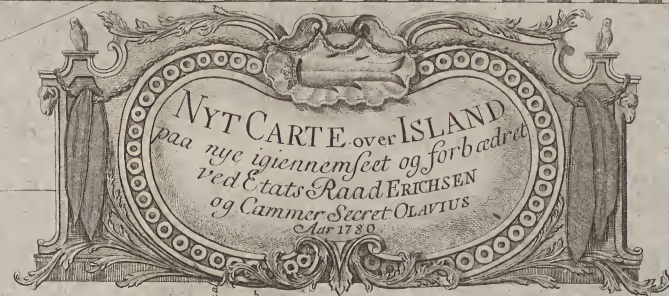 NYT CARTE over ISLAND
paa nye igiennemseet og forbædret
ved Etats Raad ERICHSEN
og Cammer Secret OLAVIUS
Aar 1780